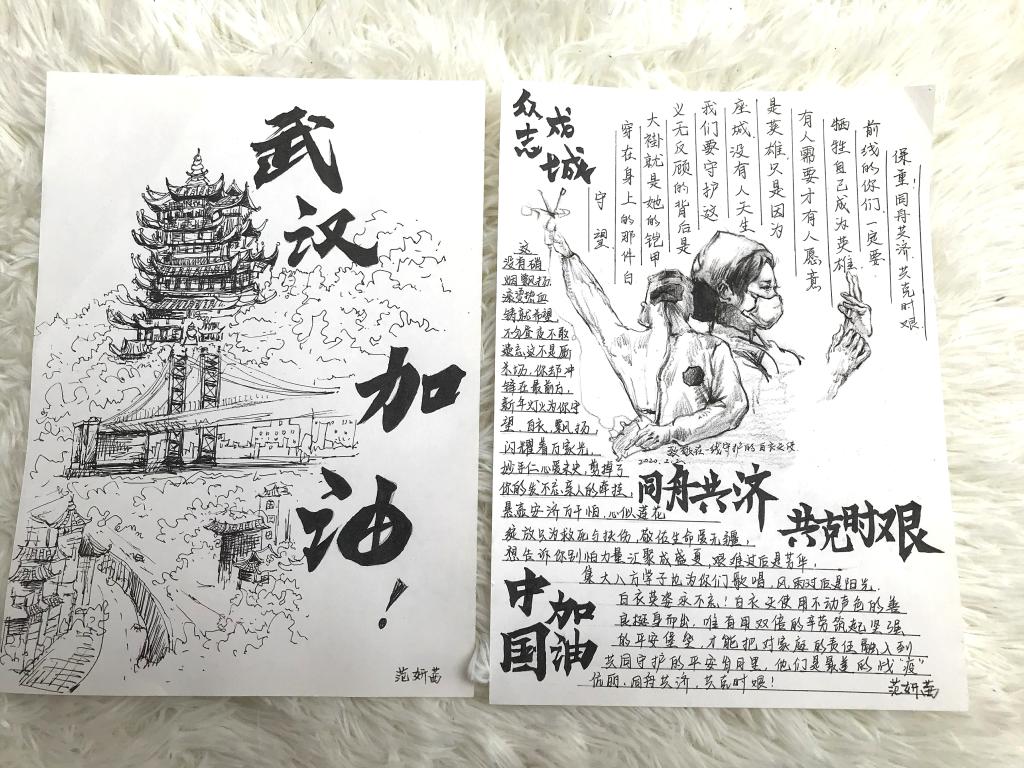 武汉加油！
范妍茜
众志成城
保重！同舟共济.共克时艰
前线的你们一定要
牺牲自己成为英雄
有人需要才有人愿意
是英雄.只是因为
座城.没有人天生
我们要守护这
义无反顾的背后是
大褂就是她的铠甲
穿在身上的那件白
守望
这
没有硝
烟飘扬
滚烫热血
铸就希望
不分昼夜不敢
你却冲
锋在最前方,
新年灯火为你守
望,白衣飘扬
闪耀着万家光,
妙手仁心要来史,剪掉了
你的发不忘亲人的牵挂,
悬壶安济万千怕,心似莲花
绽放只为救死与扶伤,敬佐生命要无疆,
想告诉你别怕力量汇聚成盛夏,艰难过后是芳华,
集大八方学子也为你们歌唱,风雨过后是阳光.
白衣英姿永不忘！白衣天使用不动声色的善
良挺身而出,唯有用双倍的辛劳筑起坚强
的平安堡垒,才能把对家庭的责任融入到
共同守护的平安当月里,他们是最美的战"疫"
伉丽.同舟共济,共克时艰！
致敬在一线守护的白衣天使
2020.2.2
同舟共济
共克时艰
中国加油
范妍茜